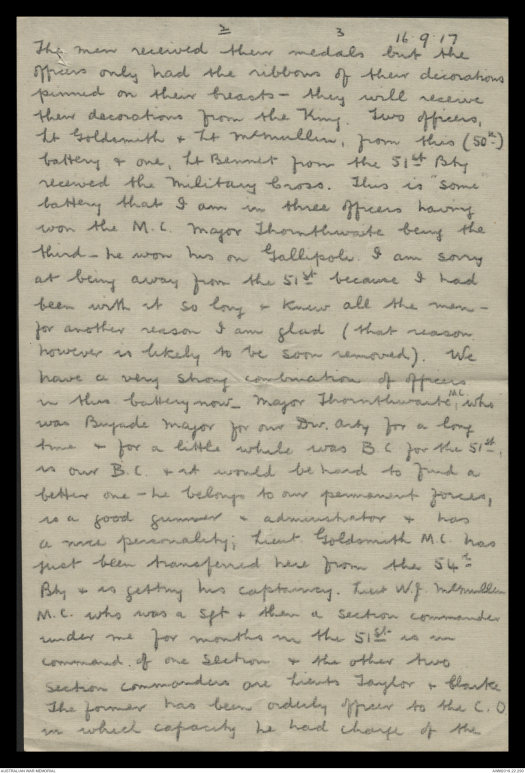 2 3 16.9.17
The men received their medals but the
officers only had the ribbons of their decorations
pinned on their breasts - they will receive
their decorations from the King. Two officers,
Lt Goldsmith + Lt McMullin, from this (50th)
battery + one, Lt Bennet from the 51st Bty
received the Military Cross. This is "some
battery that I am in three officers having
won the M.C. Major Thornthwaite being the
third - he won his on Gallipoli. I am sorry
at being away from the 51st because I had
been with it so long + knew all the men -
for another reason I am glad (that reason
however is likely to be soon removed). We
have a very strong combination of officers
in this battery now - Major Thornthwaite, M.C. who
was Brigade Major for our Div. Arty for a long
time + for a little while was B.C. for the 51st,
is our B.C. + it would be hard to find a
better one - he belongs to our permanent forces,
is a good gunner + administrator + has
a nice personality; Lieut Goldsmith M.C. has
just been transferred here from the 54th
Bty + is getting his captaincy. Lieut W.J. McMullin
M.C. who was a Sgt + then a section commander
under me for months in the 51st is in
command of one section + the other two
section commanders are Lieuts Taylor + Clarke
The former has been orderly officer to the C.O
in which capacity he had charge of the
AUSTRALIAN WAR MEMORIAL